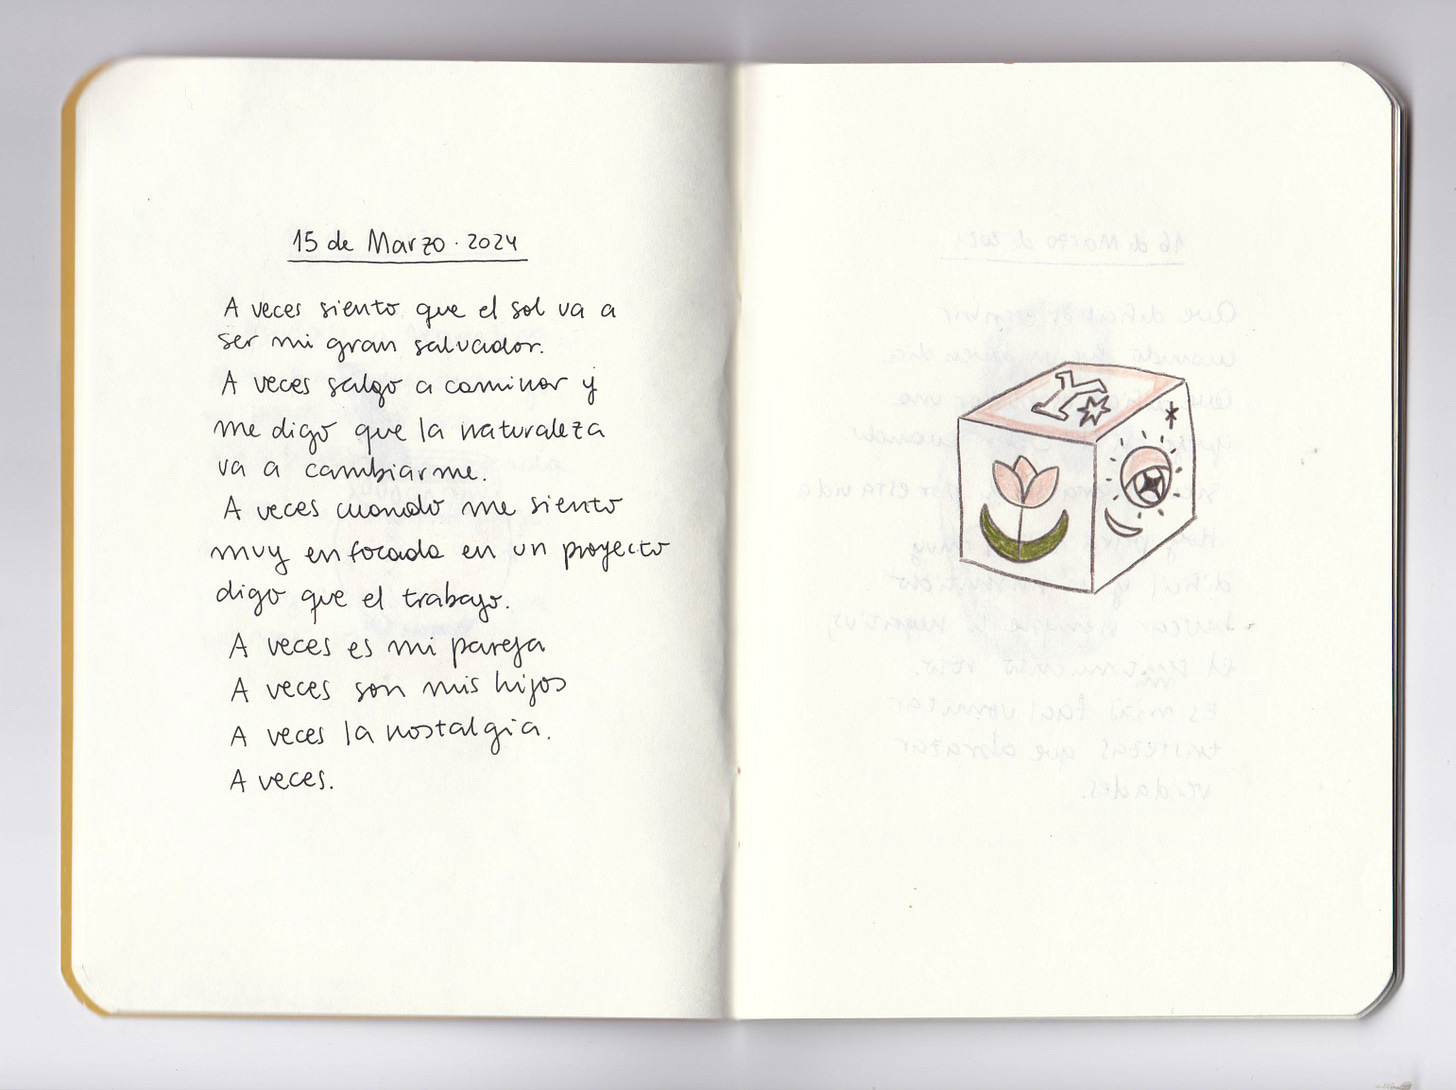 15 de Marzo · 2024
A veces siento que el sol va a
ser mi gran salvador.
A veces salgo a caminar y
me digo que la naturaleza
va a cambiarme.
A veces cuando me siento
muy enfocada en un proyecto
digo que el trabajo.
A veces es mi pareja
A veces son mis hijos
A veces la nostalgia.
A veces.